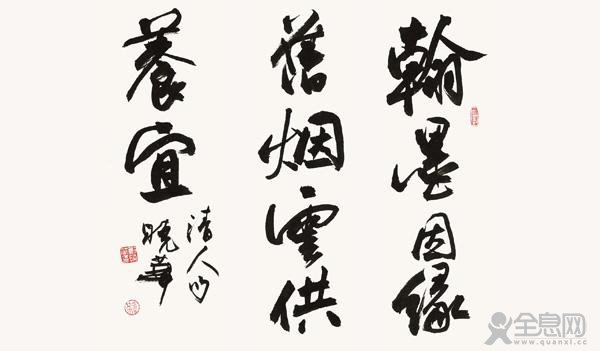 翰墨因缘
舊烟雲供
養宜
清人句
曉華
全息网
www.quanxi.cc